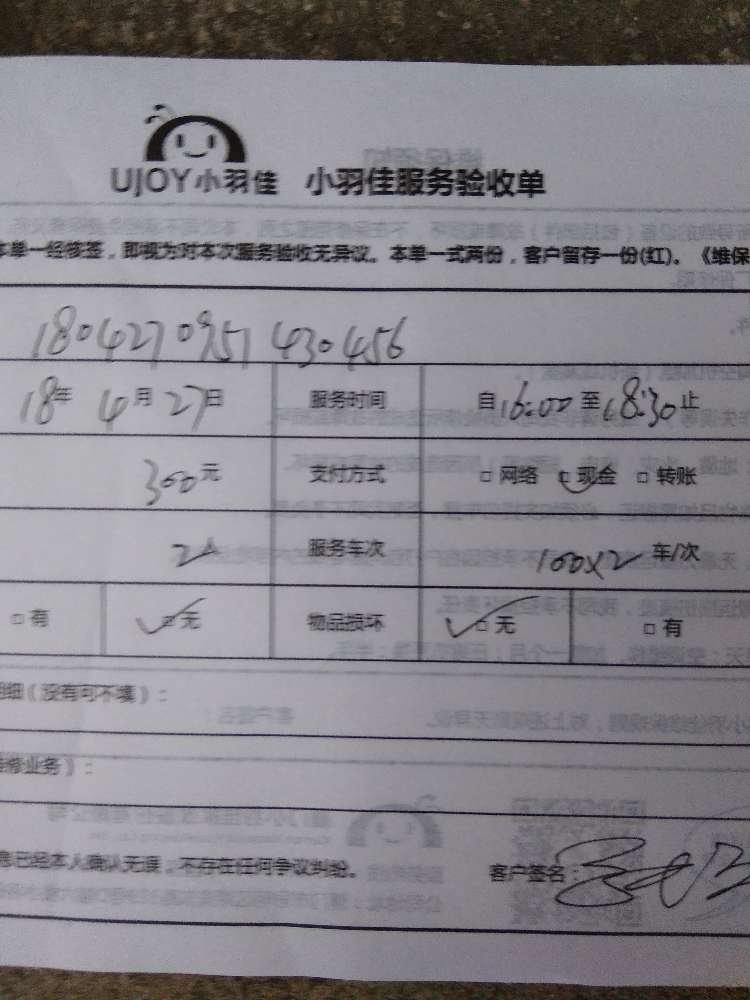 UJOY小羽佳 小羽佳服务验收单
本单一经核签，即视为对本次服务验收无异议。本单一式两份，客户留存一份(红)。《维保
180427095143045​6
18年 4月27日 服务时间 自16:00至18:30止
300元 支付方式 □网络 ☑现金 □转账
2人 服务车次 100×2 车/次
□有 ☑无 物品损坏 ☑无 □有
明细（没有可不填）：
维修业务）：
已经本人确认无误，不存在任何争议纠纷。 客户签名：